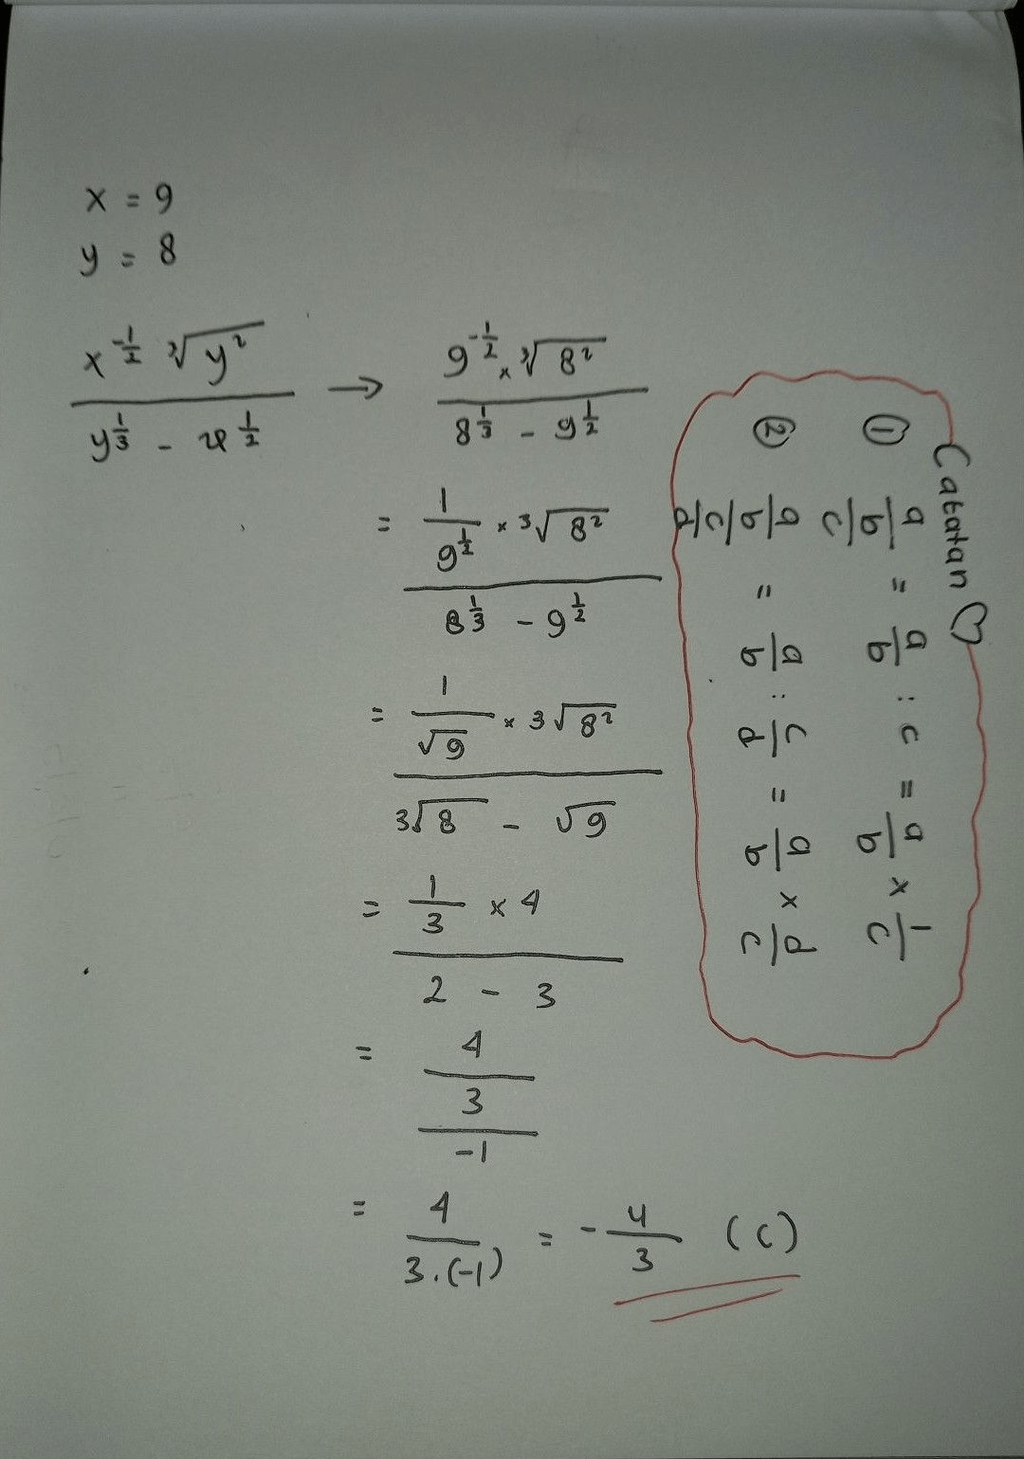 x = 9
y = 8
x^{-\frac{1}{2}} \sqrt[3]{y^2} / y^{\frac{1}{3}} - x^{\frac{1}{2}} → 9^{-\frac{1}{2}} × \sqrt[3]{8^2} / 8^{\frac{1}{3}} - 9^{\frac{1}{2}}
= \frac{1}{9^{\frac{1}{2}}} × \sqrt[3]{8^2} / 8^{\frac{1}{3}} - 9^{\frac{1}{2}}
= \frac{1}{\sqrt{9}} × \sqrt[3]{8^2} / \sqrt[3]{8} - \sqrt{9}
= \frac{1}{3} × 4 / 2 - 3
= \frac{4}{3} / -1
= \frac{4}{3.(-1)} = -\frac{4}{3} (C)
Catatan ♡
① \frac{a}{b} / c = \frac{a}{b} : c = \frac{a}{b} × \frac{1}{c}
② \frac{a}{b} / \frac{c}{d} = \frac{a}{b} : \frac{c}{d} = \frac{a}{b} × \frac{d}{c}